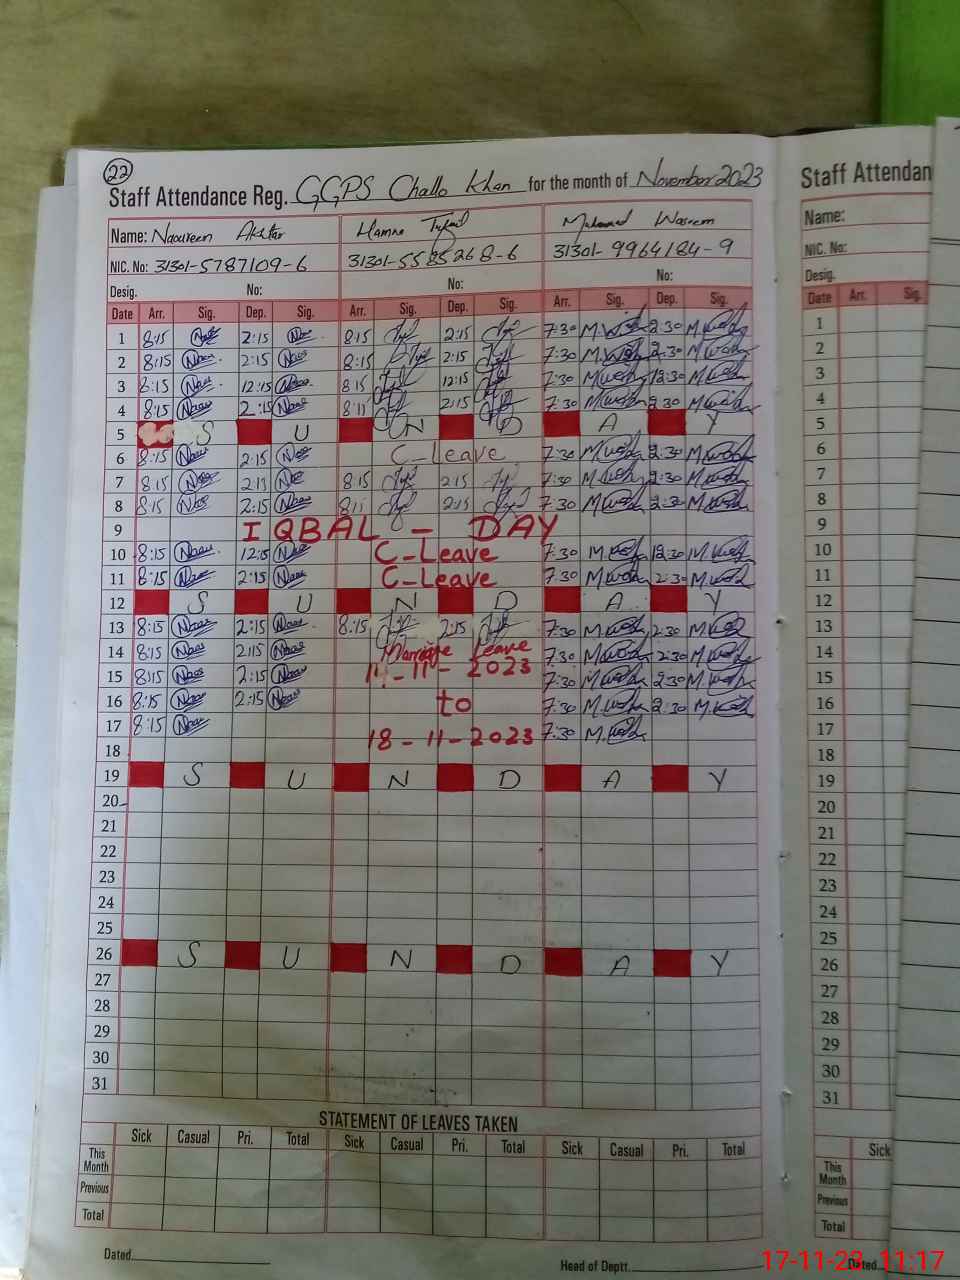 22
Staff Attendance Reg. GGPS Challo Khan for the month of November 2023
Name: Noureen Akhtar Hamna Tufail Muhammad Waseem
NIC. No: 31301-5787109-6 31301-5585268-6 31301-9964184-9
Desig. No: No: No:
Date Arr. Sig. Dep. Sig. Arr. Sig. Dep. Sig. Arr. Sig. Dep. Sig.
1 8:15 2:15 8:15 2:15 7:30 2:30
2 8:15 2:15 8:15 2:15 7:30 2:30
3 8:15 12:15 8:15 12:15 7:30 12:30
4 8:15 2:15 8:11 2:15 7:30 2:30
5 S U N D A Y
6 8:15 2:15 C-Leave 7:30 2:30
7 8:15 2:13 8:15 2:15 7:30 2:30
8 8:15 2:15 8:11 2:15 7:30 2:30
9 IQBAL - DAY
10 8:15 12:15 C-Leave 7:30 12:30
11 8:15 2:15 C-Leave 7:30 2:30
12 S U N D A Y
13 8:15 2:15 8:15 2:15 7:30 2:30
14 8:15 2:15 Marriage Leave 7:30 2:30
15 8:15 2:15 14-11-2023 7:30 2:30
16 8:15 2:15 to 7:30 2:30
17 8:15 18-11-2023 7:30
18
19 S U N D A Y
20
21
22
23
24
25
26 S U N D A Y
27
28
29
30
31
STATEMENT OF LEAVES TAKEN
Sick Casual Pri. Total Sick Casual Pri. Total Sick Casual Pri. Total
This Month
Previous
Total
Dated
Head of Deptt.
Staff Attendan
Name:
NIC. No:
Desig.
Date Arr. Sig.
1
2
3
4
5
6
7
8
9
10
11
12
13
14
15
16
17
18
19
20
21
22
23
24
25
26
27
28
29
30
31
Sick
This Month
Previous
Total
Dated
17-11-23 11:17